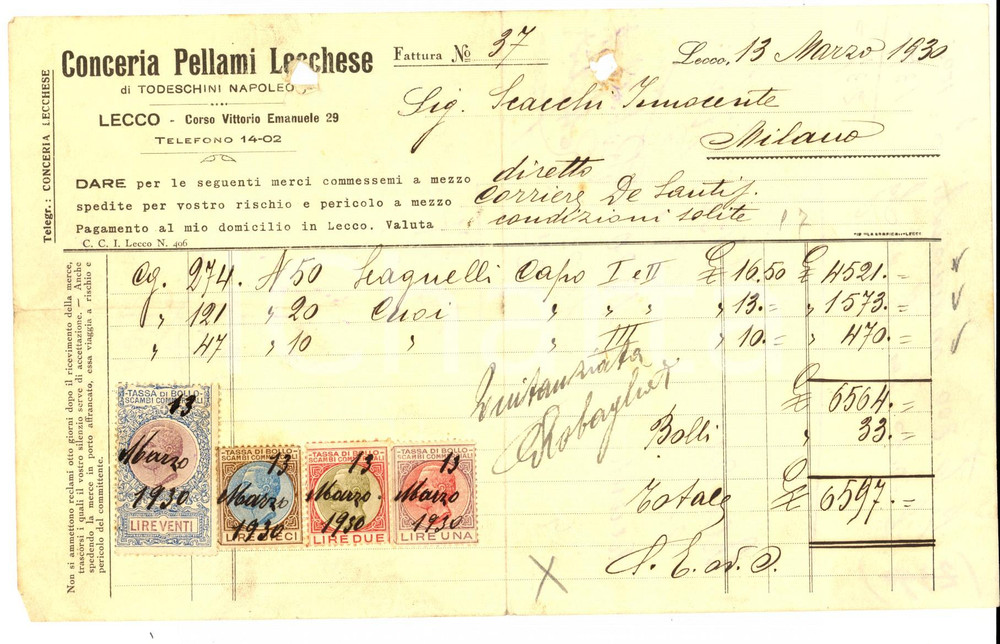 Conceria Pellami Lecchese
di TODESCHINI NAPOLEO
LECCO - Corso Vittorio Emanuele 29
TELEFONO 14-02
Telegr.: CONCERIA LECCHESE
Fattura No 37
Lecco, 13 Marzo 1930
Sig. Scacchi Innocente
Milano
DARE per le seguenti merci commessemi a mezzo diretto
spedite per vostro rischio e pericolo a mezzo Corriere De Santis.
Pagamento al mio domicilio in Lecco. Valuta condizioni solite
17
C. C. I. Lecco N. 406
Cg. 274. N 50 Scagnelli Capo I e II £ 16.50 £ 4521.=
" 121 " 20 Cuoi " " " " 13.= " 1573.=
" 47 " 10 " " III " 10.= " 470.=
£ 6564.=
Quitanziata
Bolli 33.=
Totale £ 6597.=
S. E. od O.
X
TASSA DI BOLLO
SCAMBI COMMERCIALI
13
Marzo
1930
LIRE VENTI
TASSA DI BOLLO
SCAMBI COMMERCIALI
13
Marzo
1930
LIRE DIECI
TASSA DI BOLLO
SCAMBI COMMERCIALI
13
Marzo
1930
LIRE DUE
TASSA DI BOLLO
SCAMBI COMMERCIALI
13
Marzo
1930
LIRE UNA
Non si ammettono reclami otto giorni dopo il ricevimento della merce,
trascorsi i quali il vostro silenzio serve di accettazione. - Anche
spedendo la merce in porto affrancato, essa viaggia a rischio e
pericolo del committente.